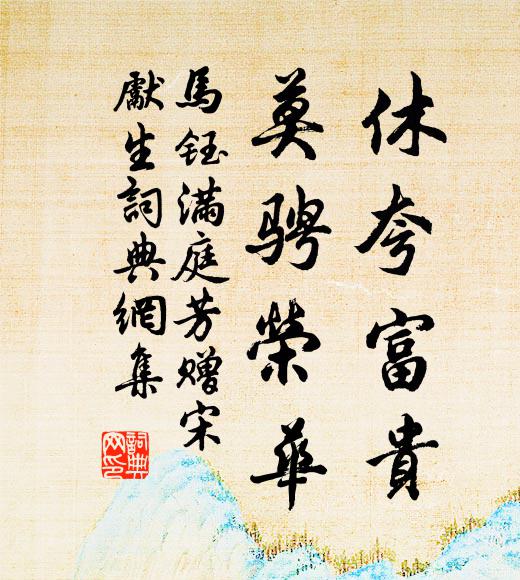 休夸富貴
莫骋榮華
馬鈺满庭芳赠宋
獻生詞典網集
詞典網印